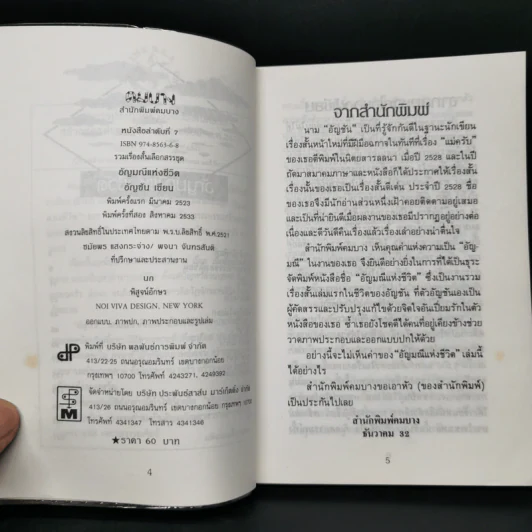 คมบาง
สำนักพิมพ์คมบาง
หนังสือลำดับที่ 7
ISBN 974-8563-6-8
รวมเรื่องสั้นเลือกสรรชุด
อัญมณีแห่งชีวิต
อัญชัน เขียน
พิมพ์ครั้งแรก มีนาคม 2523
พิมพ์ครั้งที่สอง สิงหาคม 2533
สงวนลิขสิทธิ์ในประเทศไทยตาม พ.ร.บ.ลิขสิทธิ์ พ.ศ.2521
ชมัยพร แสงกระจ่าง/ พจนา จันทรสันติ
ที่ปรึกษาและประสานงาน
นก
พิสูจน์อักษร
NOI VIVA DESIGN, NEW YORK
ออกแบบ, ภาพปก, ภาพประกอบและรูปเล่ม
พิมพ์ที่ บริษัท พลพันธ์การพิมพ์ จำกัด
413/22-25 ถนนอรุณอมรินทร์ เขตบางกอกน้อย
กรุงเทพฯ 10700 โทรศัพท์ 4243271, 4249392
จัดจำหน่ายโดย บริษัท ประพันธ์สาส์น มาร์เก็ตติ้ง จำกัด
413/26 ถนนอรุณอมรินทร์ เขตบางกอกน้อย กรุงเทพฯ 10700
โทรศัพท์ 4341347 โทรสาร 4341346
★ราคา 60 บาท
4
จากสำนักพิมพ์
นาม "อัญชัน" เป็นที่รู้จักกันดีในฐานะนักเขียน
เรื่องสั้นหน้าใหม่ที่มีฝีมือฉกาจในทันทีที่เรื่อง "แม่ครับ"
ของเธอตีพิมพ์ในนิตยสารลลนา เมื่อปี 2528 และในปี
ถัดมาสมาคมภาษาและหนังสือก็ได้ประกาศให้เรื่องสั้น
เรื่องนั้นของเธอเป็นเรื่องสั้นดีเด่น ประจำปี 2528 ชื่อ
ของเธอจึงมีนักอ่านส่วนหนึ่งเฝ้าคอยติดตามอยู่เสมอ
และเป็นที่น่ายินดีเมื่อผลงานของเธอมีปรากฏอยู่อย่างต่อ
เนื่องและดีวันดีคืนเรื่องแล้วเรื่องเล่าอย่างน่าตื่นใจ
สำนักพิมพ์คมบาง เห็นคุณค่าแห่งความเป็น "อัญ-
มณี" ในงานของเธอ จึงยินดีอย่างยิ่งในการที่ได้เป็นธุระ
จัดพิมพ์หนังสือชื่อ "อัญมณีแห่งชีวิต" ซึ่งเป็นงานรวม
เรื่องสั้นเล่มแรกในชีวิตของอัญชัน ที่ตัวอัญชันเองเป็น
ผู้คัดสรรและปรับปรุงแก้ไขด้วยจิตใจอันเปี่ยมรักในตัว
หนังสือของเธอ ซ้ำเธอยังโชคดีได้คนที่อยู่เคียงข้างช่วย
วาดภาพประกอบและออกแบบปกให้ด้วย
อย่างนี้จะไม่เห็นค่าของ "อัญมณีแห่งชีวิต" เล่มนี้
ได้อย่างไร
สำนักพิมพ์คมบางขอเอาหัว (ของสำนักพิมพ์)
เป็นประกันไปเลย
สำนักพิมพ์คมบาง
ธันวาคม 32
5